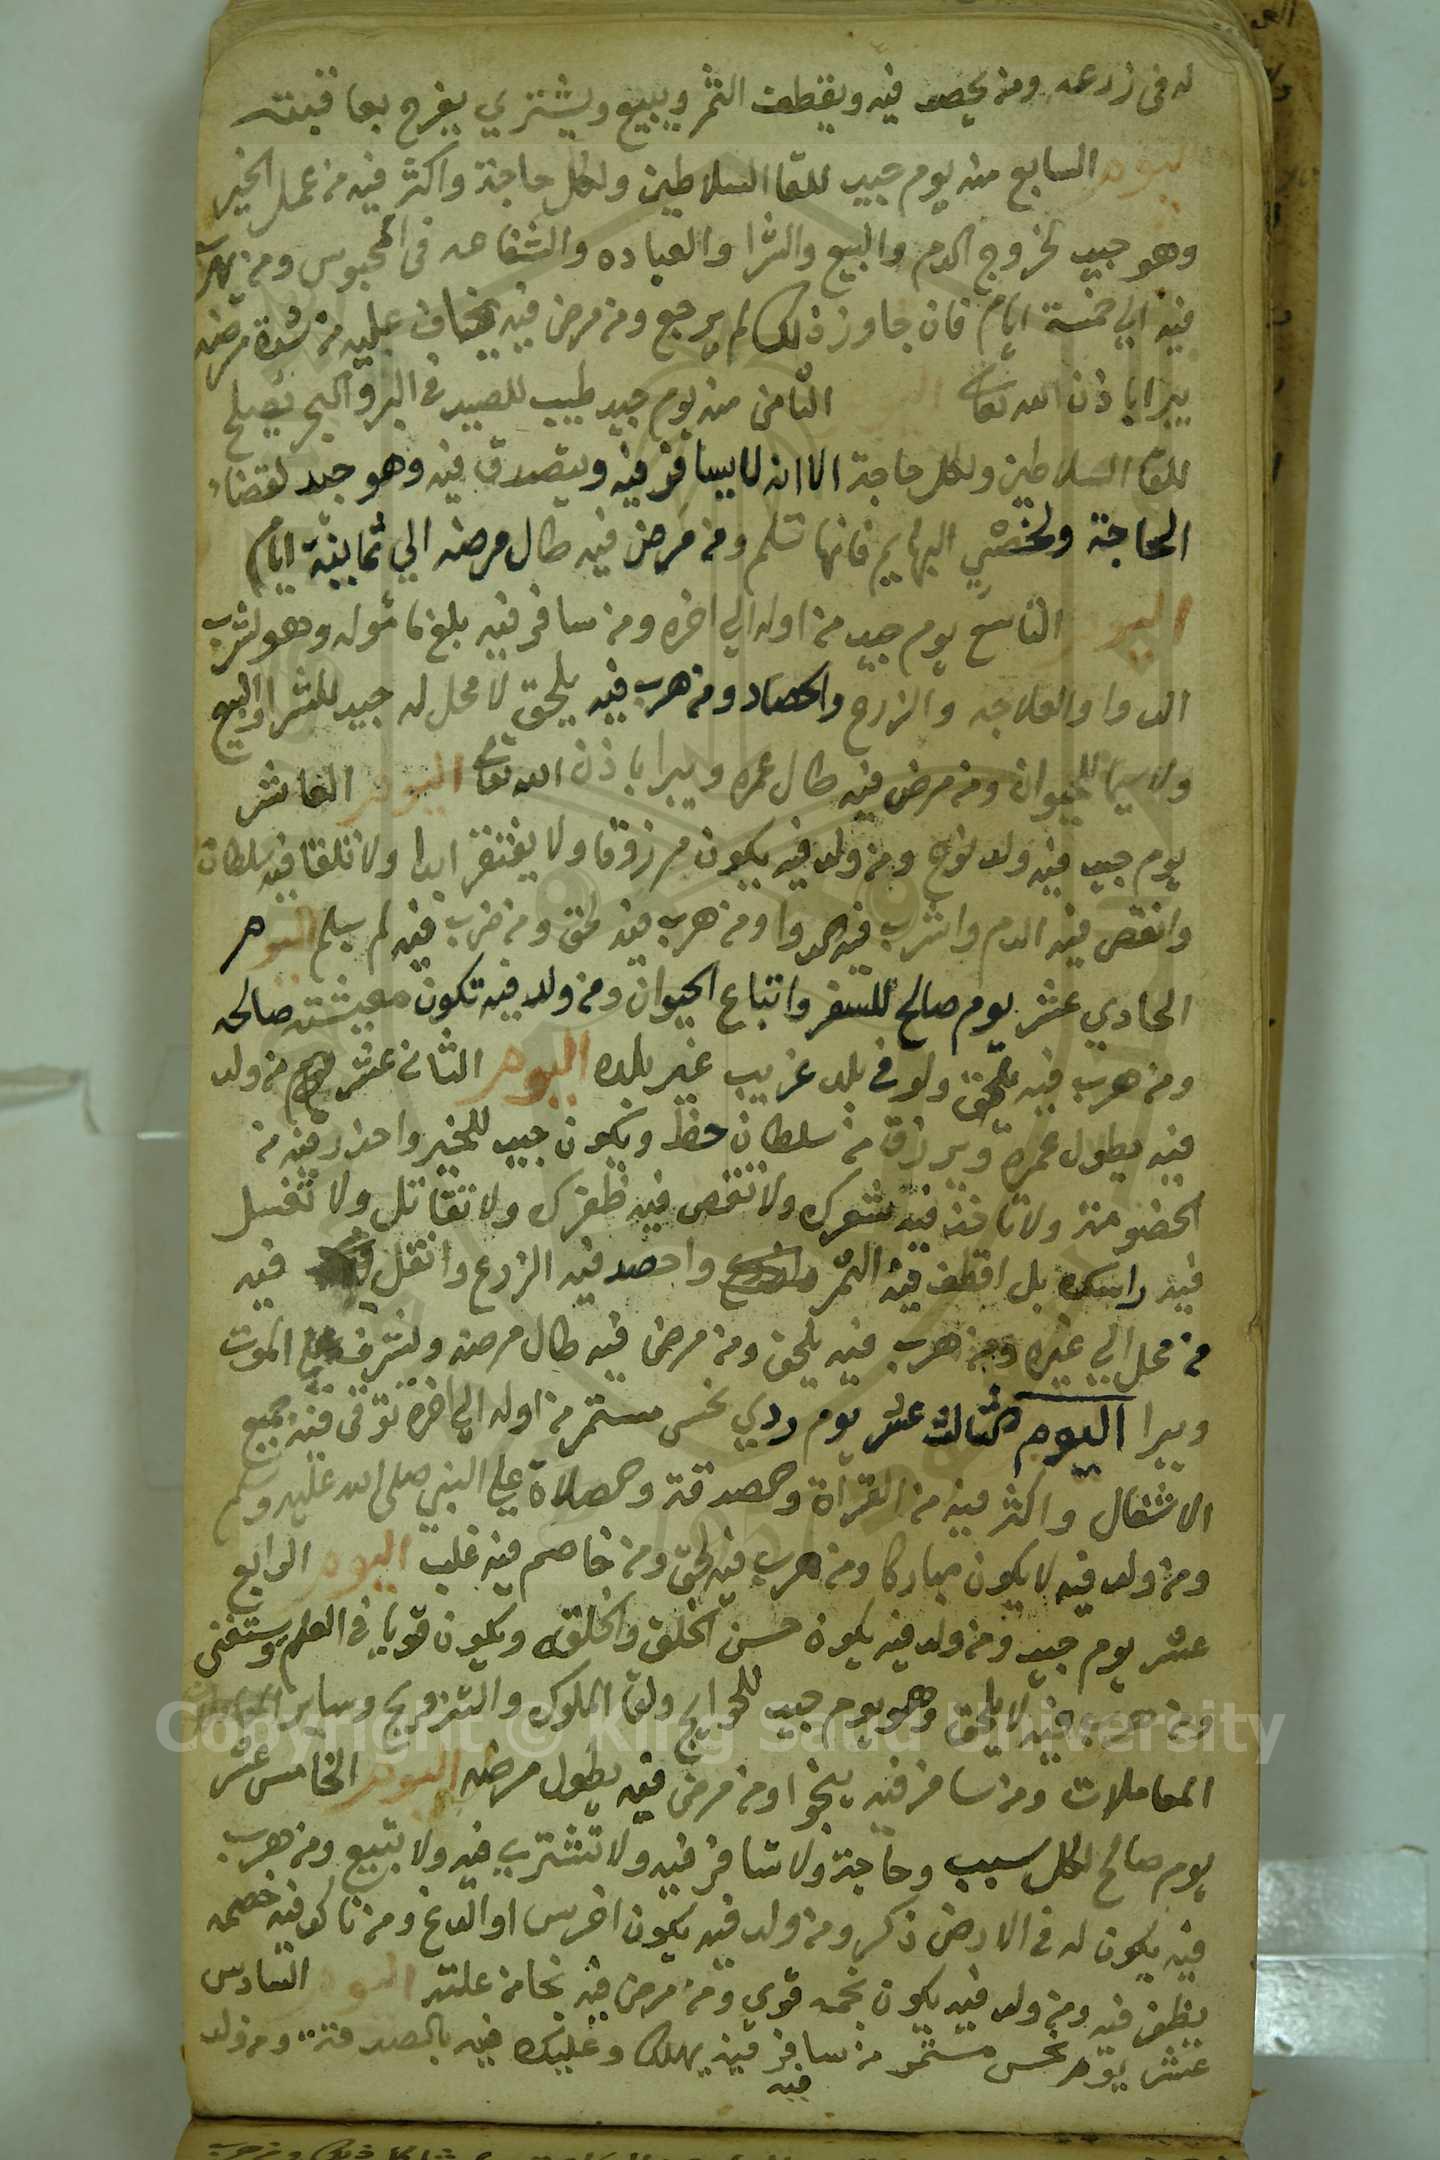 له في زرعه ومن يحصد فيه ويقطف الثمر ويبيع ويشتري يفرح بعاقبته
اليوم السابع منه يوم جيد للقا السلاطين ولكل حاجة واكثر فيه من عمل الخير
وهو جيد لخروج الدم والبيع والشرا والعباده والشفاعه في المحبوس ومن يهرب
فيه الي خمسة ايام فان جاوز ذلك لم يرجع ومن مرض فيه يخاف عليه من شدة مرضه
يبرا باذن الله تعالى اليوم الثامن منه يوم جيد طيب للصيد في البر والبحر يصلح
للقا السلاطين ولكل حاجة الا انه لا يسافر فيه ويتصدق فيه وهو جيد لقضاء
الحاجة ولخصي البهايم فانها تسلم ومن مرض فيه طال مرضه الي ثمانية ايام
اليوم التاسع يوم جيد من اوله الي اخره ومن سافر فيه بلغ مأموله وهو لشرب
الدوا والعلاجه والزرع والحصاد ومن هرب فيه يلحق لا محل له جيد للشرا والبيع
ولا سيما للحيوان ومن مرض فيه طال عمره ويبرا باذن الله تعالى اليوم العاشر
يوم جيد فيه ولد نوح ومن ولد فيه يكون مرزوقا ولا يفتقر ابدا ولا تلقا فيه سلطان
وانقص فيه الدم واشرب فيه الدوا ومن هرب فيه لحق ومن ضرب فيه لم يسلم اليوم
الحادي عشر يوم صالح للسفر واتباع الحيوان ومن ولد فيه تكون معيشته صالحه
ومن هرب فيه يلحق ولو في بلد غريب غير بلده اليوم الثاني عشر يوم من ولد
فيه يطول عمره ويرزق من سلطان حظ ويكون جيد للخير واحذر فيه من
الخصومة ولا تاخذ فيه شعرك ولا تنقص فيه ظفرك ولا تقاتل ولا تغسل
فيه راسك بل اقطف فيه الثمر واحصد فيه الزرع وانقل فيه
من محل الي غيره ومن هرب فيه يلحق ومن مرض فيه طال مرضه ولشرف علي الموت
ويبرا اليوم الثالث عشر يوم ردي نحس مستمر من اوله الي اخره توقى فيه جميع
الاشغال واكثر فيه من القراة والصدقة والصلاة علي النبي صلى الله عليه وسلم
ومن ولد فيه لا يكون مباركا ومن هرب فيه لحق ومن خاصم فيه غلب اليوم الرابع
عشر يوم جيد ومن ولد فيه يكون حسن الخلق والخلقه ويكون قويا في العلم ويستغني
ومن هرب فيه لا يلحق وهو يوم جيد للحوايج ولقا الملوك والتزويج وساير
المعاملات ومن سافر فيه ينجوا ومن مرض فيه يطول مرضه اليوم الخامس عشر
يوم صالح لكل سبب وحاجة ولا تسافر فيه ولا تشترب فيه ولا تبيع ومن هرب
فيه يكون له في الارض ذكر ومن ولد فيه يكون اخرس او الدغ ومن ناكد فيه خصمه
يظفر فيه ومن ولد فيه يكون نجمه قوي ومن مرض فيه نجا من علته اليوم السادس
عشر يوم نحس مستمر من سافر فيه يهلك وعليك فيه بالصدقة ومن ولد
فيه
Copyright © King Saud University